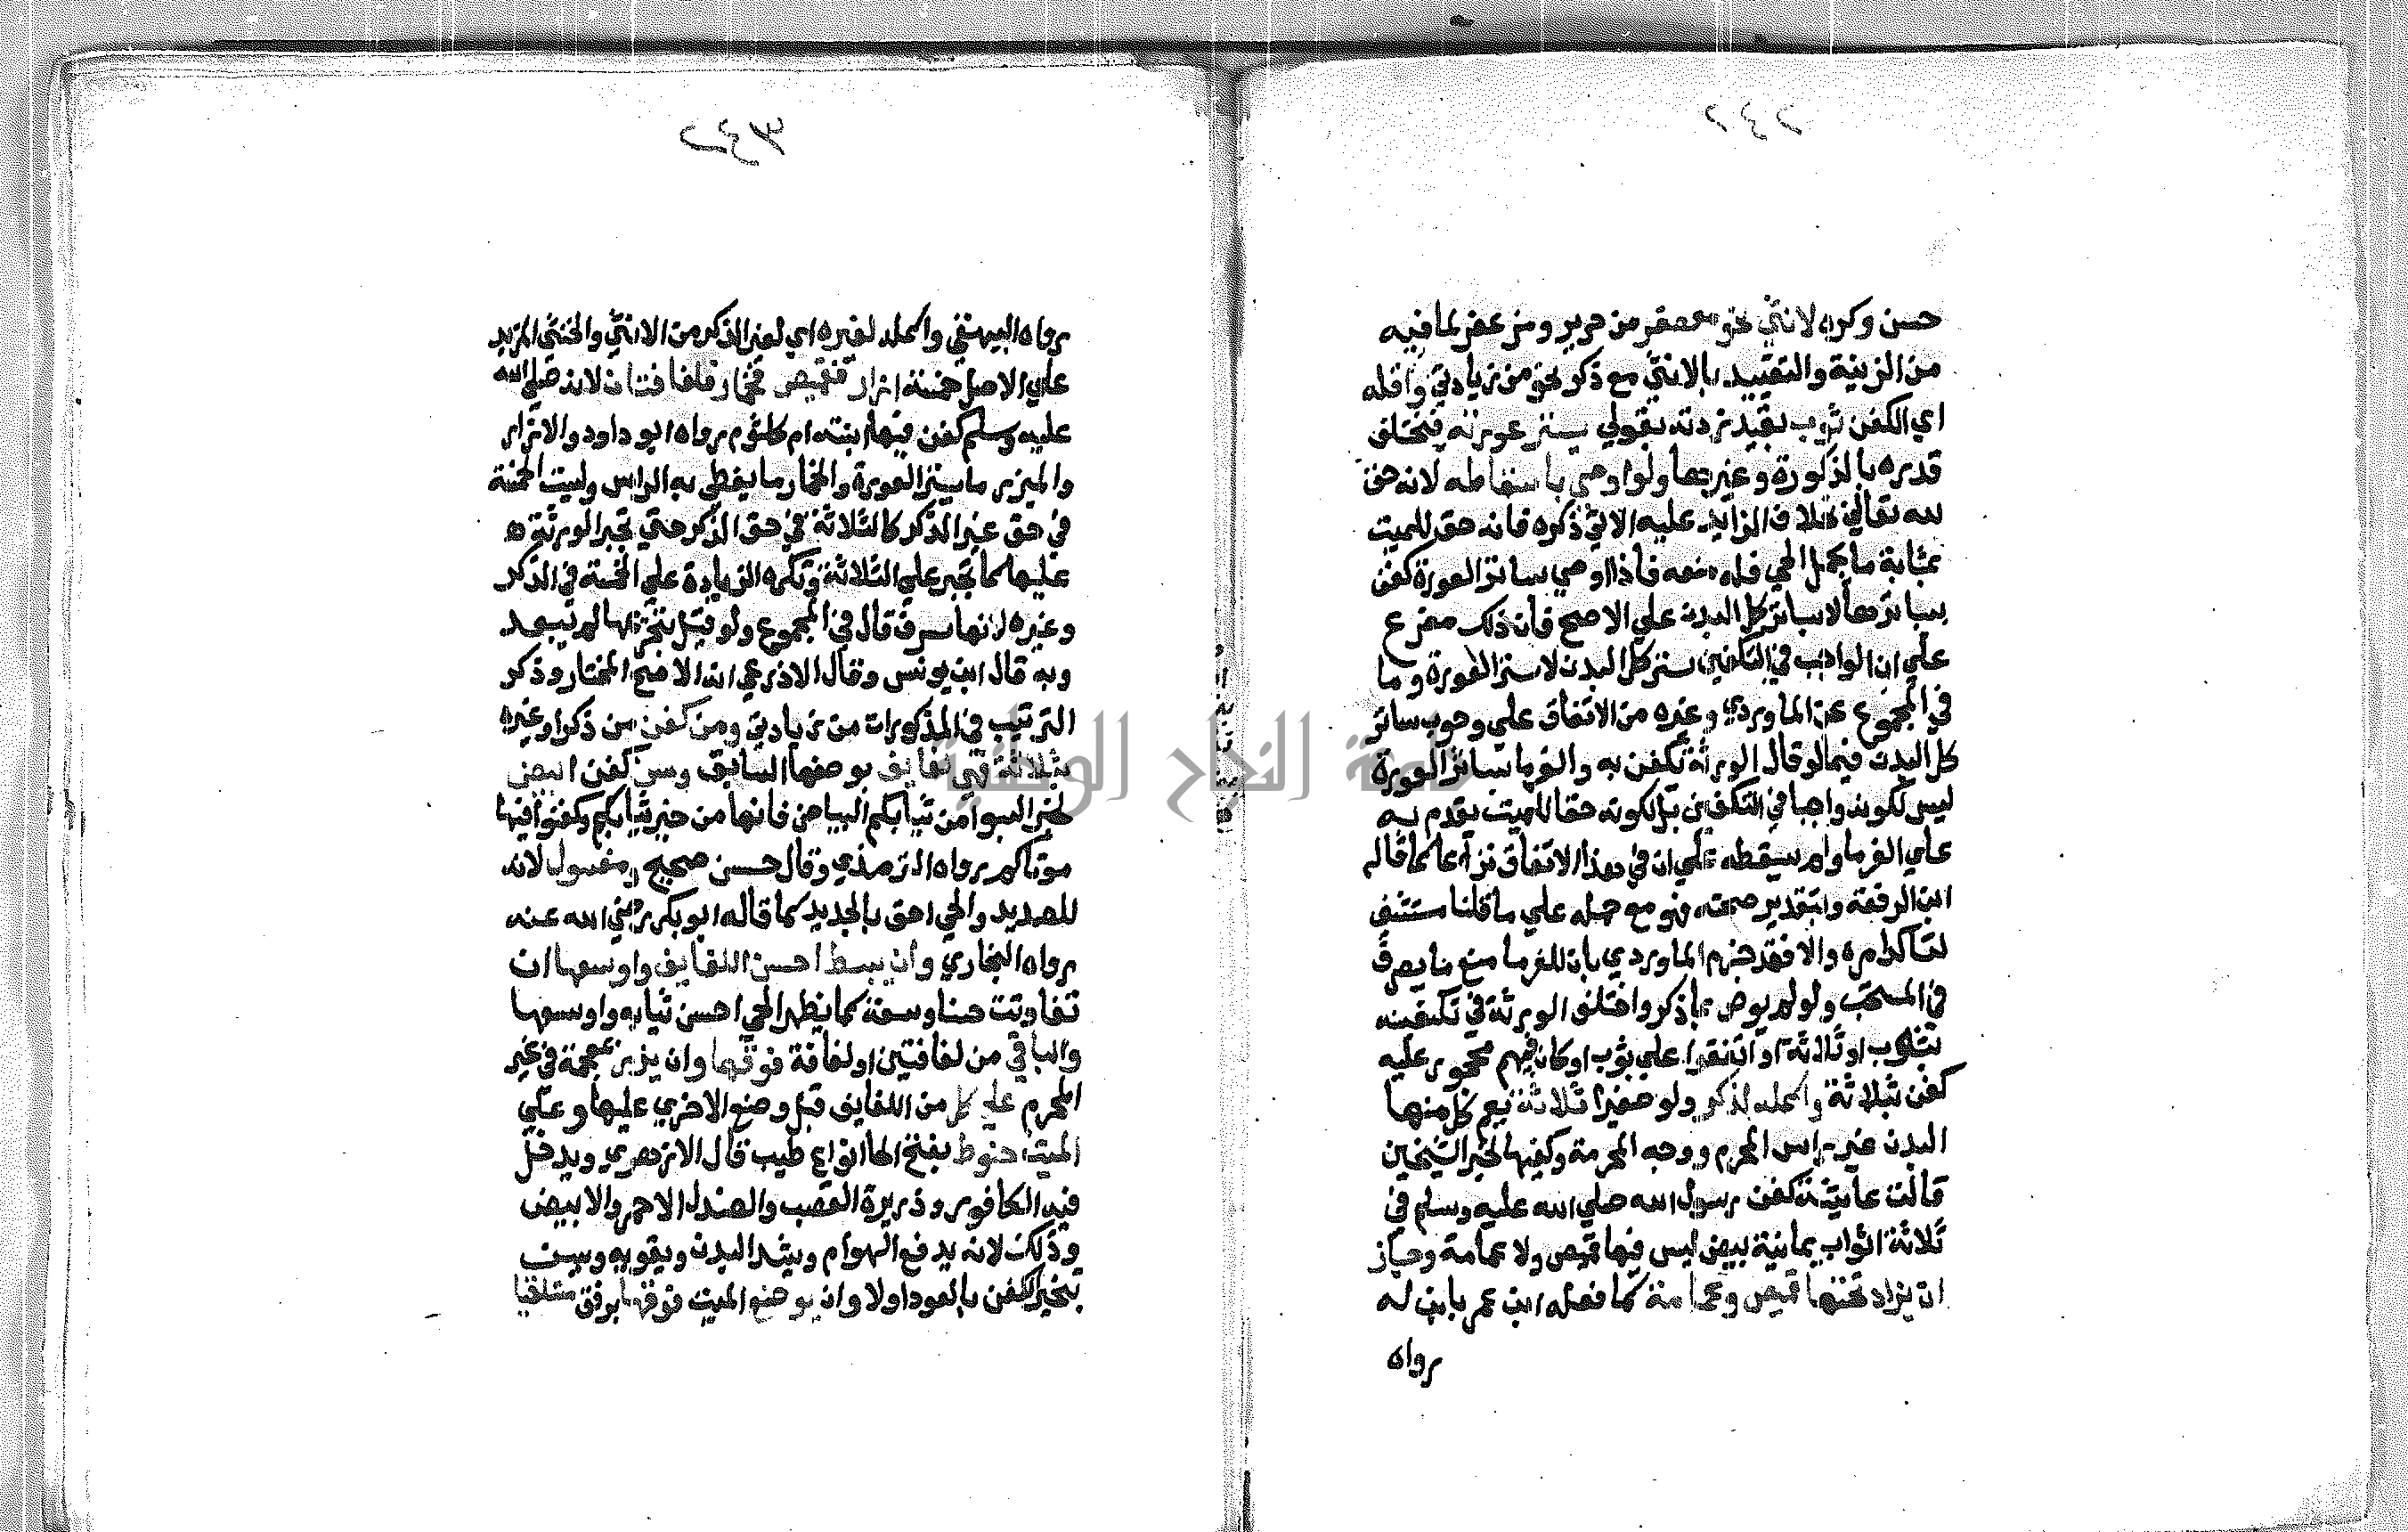 ٢٤٢
حسن وكره لانثي نحو معصفر من حرير ومزعفر لما فيه
من الزينة والتقييد بالانثي مع ذكر نحو من زيادتي واقله
اي الكفن ثوب بقيد زدته بقولي يستر عورته فيختلف
قدره بالذكورة وغيرها ولو اوصي باسقاطه لانه حق
لله تعالي بخلاف الزايد عليه الاتي ذكره فانه حق للميت
بمثابة ما يجمل الحي فله منعه فاذا اوصي بساتر العورة كفن
بساترها لا بساتر كل البدن علي الاصح فان ذلك مفرع
علي ان الواجب في التكفين ستر كل البدن لا ستر العورة وما
في المجموع عن الماوردي وغيره من الاتفاق علي وجوب ساتر
كل البدن فيما لو قال الورثة تكفن به والغرما ساتر العورة
ليس لكونه واجبا في التكفين بل لكونه حقا للميت يقدم به
علي الغرما ولم يسقطه علي ان في هذا الاتفاق نزاعا كما قاله
ابن الرفعة وابتقدير صحته فهو مع حمله علي ما قلنا مستثني
لتاكد امره والا فقد جزم الماوردي بان للغرما منع ما يصرف
في المستحب ولو لم يوص بما ذكر واختلف الورثة في تكفينه
بثوب او ثلاثة او اتفقوا علي ثوب او كان فيهم محجور عليه
كفن بثلاثة واكمله لذكر ولو صغيرا ثلاثة يعم كل منها
البدن غير راس المحرم ووجه المحرمة وكفيها لخبر الشيخين
قالت عايشة كفن رسول الله صلي الله عليه وسلم في
ثلاثة اثواب يمانية بيض ليس فيها قميص ولا عمامة وجاز
ان يزاد تحتها قميص وعمامة كما فعله ابن عمر بابن له
رواه
٣٤٣
رواه البيهقي واكمله لغيره اي لغير الذكر من الانثي والخنثي المزيد
علي الاصل خمسة ازار فقميص فخمار فلفافتان لانه صلي الله
عليه وسلم كفن فيها ابنته ام كلثوم رواه ابو داود والازار
والميزر ما يستر العورة والخمار ما يغطي به الراس وليت الخمسة
في حق غير الذكر كالثلاثة في حق الذكر حتي تجبر الورثة
عليها كما تجبر علي الثلاثة وتكره الزيادة علي الخمسة في الذكر
وغيره لانها سرف قال في المجموع ولو قيل بتحريمها لم يبعد
وبه قال ابن يونس وقال الاذرعي انه الاصح المختار وذكر
الترتيب في المذكورات من زيادتي ومن كفن من ذكر او غيره
بثلاثة فهي لفايف بوصفها السابق وسن كفن ابيض
لخبر البسوا من ثيابكم البياض فانها من خير ثيابكم وكفنوا فيها
موتاكم رواه الترمذي وقال حسن صحيح ومغسول لانه
للصديد والحي احق بالجديد كما قاله ابو بكر رضي الله عنه
رواه البخاري وان يبسط احسن اللفايف واوسعها ان
تفاوتت حسنا وسعة كما يظهر الحي احسن ثيابه واوسعها
والباقي من لفافتين او لفافة فوقها وان يذر بمعجمة في غير
المحرم علي كل من اللفايف قبل وضع الاخري عليها وعلي
الميت حنوط بفتح الحا انواع طيب قال الازهري ويدخل
فيه الكافور وذريرة القصب والصندل الاحمر والابيض
وذلك لانه يدفع الهوام ويشد البدن ويقويه وسن
تبخير الكفن بالعود اولا وان يوضع الميت فوقها برفق مستلقيا